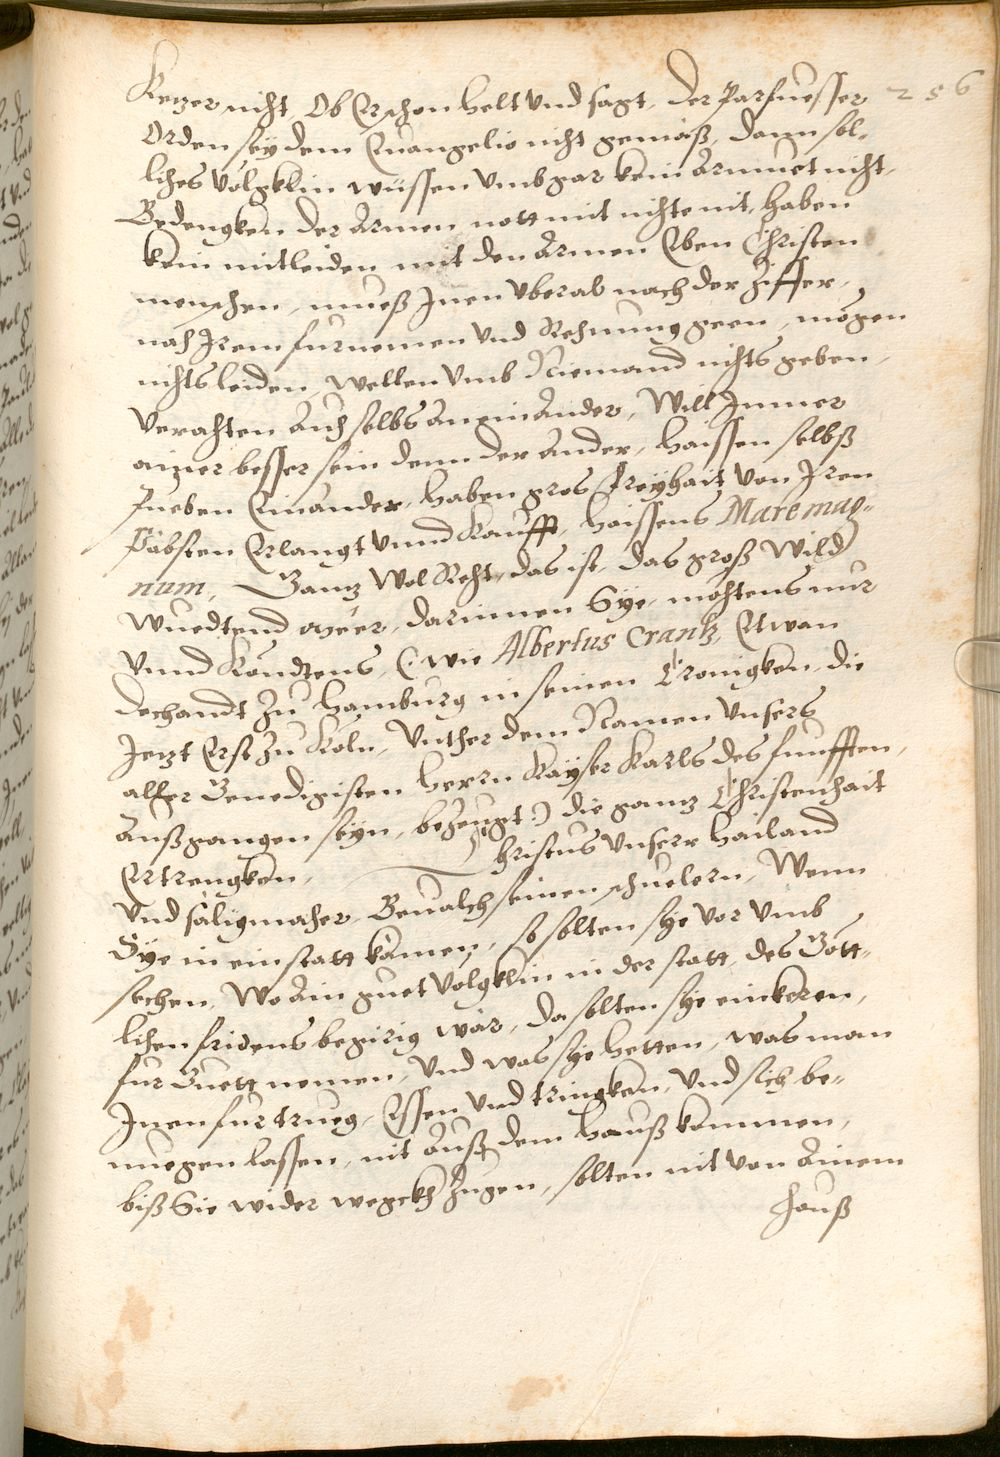 Ketzer nicht, Ob Er schon helt Vnd sagt, der Parfuesser 256
Orden sey dem Euangelio nicht gemäß, dann sol-
liches Völgklin wüssen Vmb gar kein Armuet nicht,
Bedengken der Armen nott mit nichte nit, haben
kein mitleiden mit den Armen Eben Christen
menschen, mueß Inen vberab nach der Ziffer,
nach Irem furnemen Vnd Rechnung geen, mögen
nichts leiden, Wellen Vmb Niemand nichts geben,
Verachten Auch selbs An einAnder, Will Immer
ainer besser sein denn der Ander, haissen selbß
Bueben Einander, haben gros Freyhait Von Iren
Bäbsten Erlangt Vnnd Kaufft, haissens Mare mag-
num, Ganz Wol Recht, das ist, das groß Wild
Wuedtend Meer, darinnen Sye, möchtens nur
Vnnd Kondtens, (: wie Albertus Crantz, Etwan
dechandt Zu Hamburg in seinen Cronigken, die
Jetzt Erst Zu Köln, Vnther dem Namen Vnsers
aller Genedigisten herrn Kayser Karls des funfften,
Außgangen seyn, bezeugt :) die ganz Christenhait
Ertrengken. Christus Vnserr hailand
Vnd säligmacher, Beualch seinen schuelern, Wenn
Sye in ein statt kämen, so solten sye vor Vmb
sechen, Wo Ain guet Völgklin in der statt, des Gött-
lichen fridens begirig wär, da solten sye einkeren,
fur Guett nemen, Vnd was sye hetten, was man
Inen furtrueg, Essen Vnd tringken, Vnd sich be-
nuegen lassen, nit Auß dem hauß kommen,
biß Sie wider wegckh Zugen, solten nit von Ainem
hauß